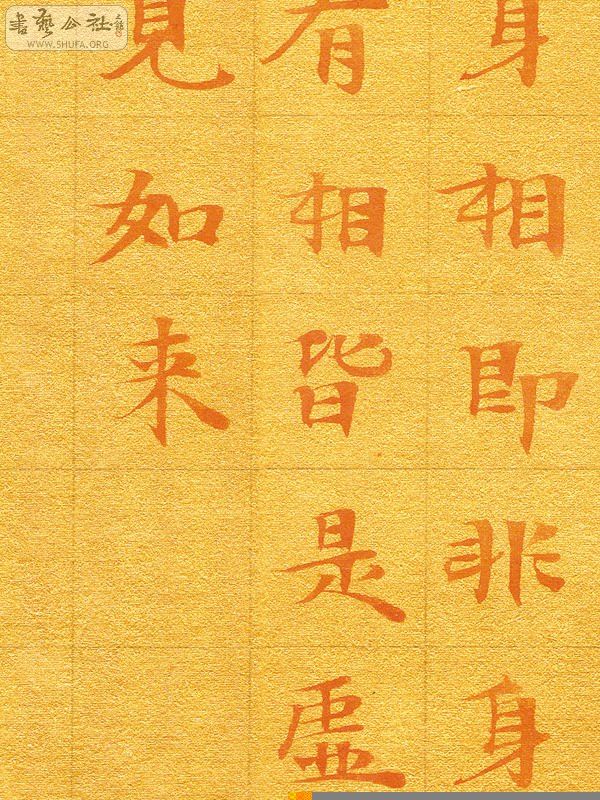 身相即非身
有相皆是虚
見如来
書藝公社
WWW.SHUFA.ORG